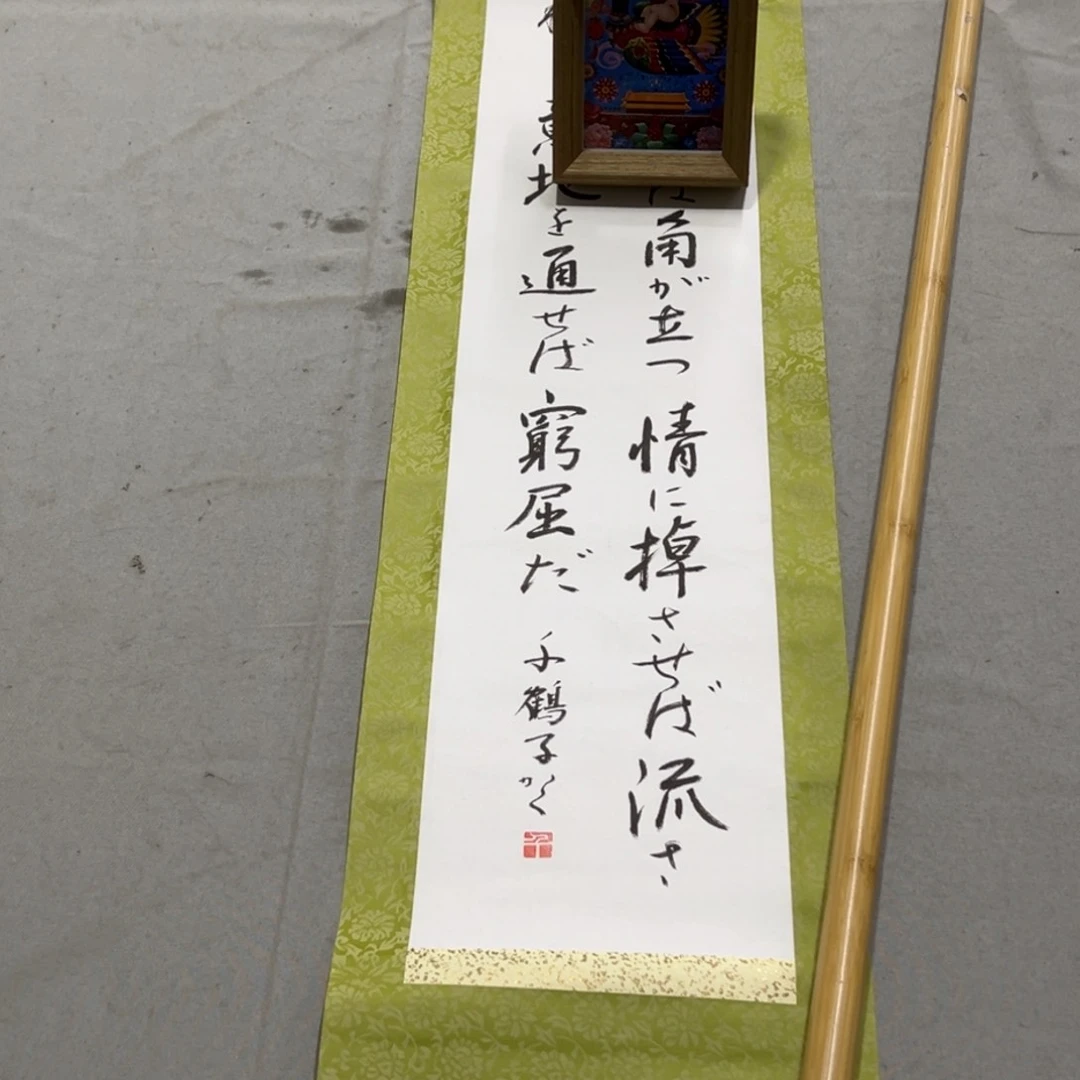 角が立つ 情に掉させば流さ
意地を通せば 窮屈だ 千鶴子かく